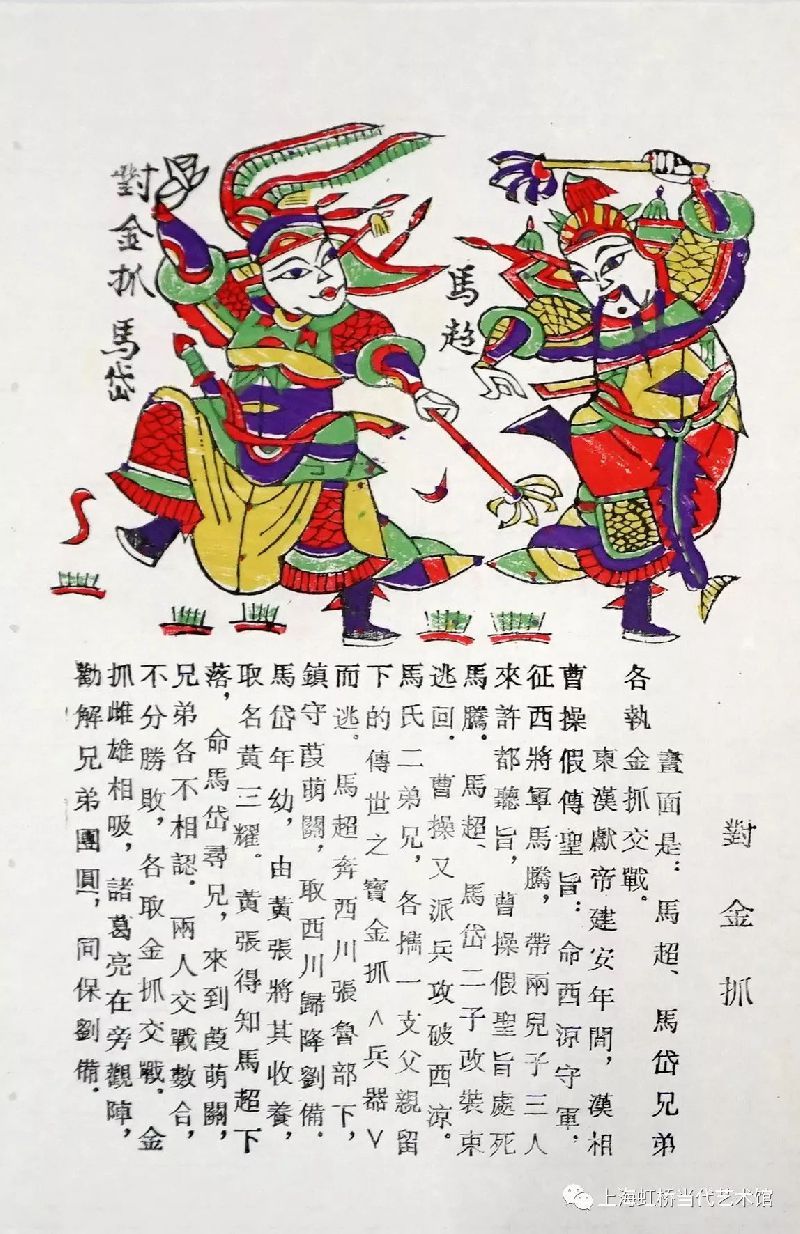 馬超
對金抓 馬岱
對金抓
畫面是：馬超、馬岱兄弟
各執金抓交戰。
東漢獻帝建安年間，漢相
曹操假傳聖旨：命西涼守軍．
征西將軍馬騰，帶兩兒子三人
來許都聽旨，曹操假聖旨處死
馬騰．馬超、馬岱二子改裝束
逃回．曹操又派兵攻破西涼。
馬氏二弟兄，各攜一支父親留
下的傳世之寶金抓∧兵器∨
而逃。馬超奔西川張魯部下，
鎮守葭萌關，取西川歸降劉備．
馬岱年幼，由黃張將其收養，
取名黃三耀。黃張得知馬超下
落，命馬岱尋兄，來到葭萌關，
兄弟各不相認．兩人交戰數合，
不分勝敗，各取金抓交戰．金
抓雌雄相吸，諸葛亮在旁觀陣，
勸解兄弟團圓，同保劉備．
上海虹桥当代艺术馆